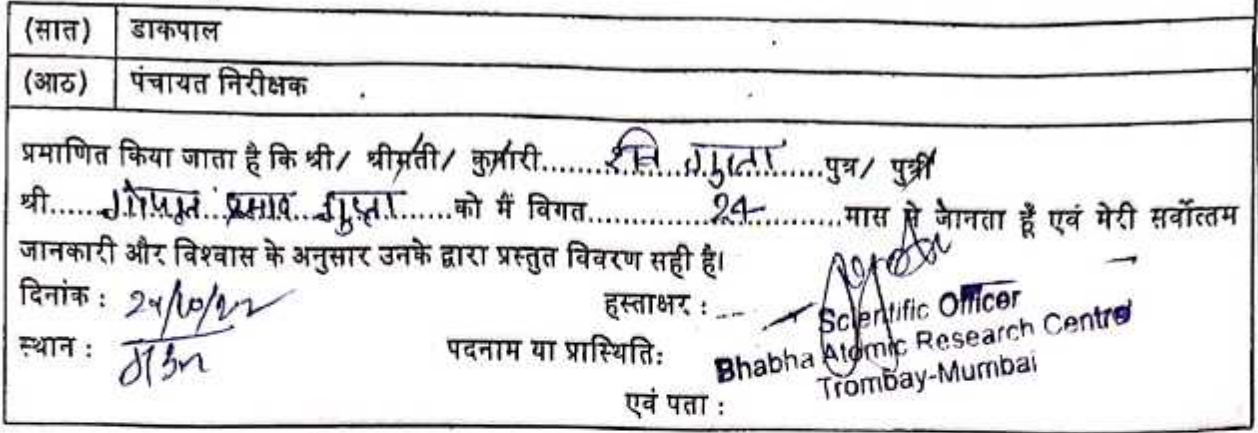 (सात) डाकपाल
(आठ) पंचायत निरीक्षक
प्रमाणित किया जाता है कि श्री/ श्रीमती/ कुमारी..........रवि गुप्ता..........पुत्र/ पुत्री
श्री...... प्रसाद गुप्ता......को मैं विगत....................24................मास से जानता हूँ एवं मेरी सर्वोत्तम
जानकारी और विश्वास के अनुसार उनके द्वारा प्रस्तुत विवरण सही है।
दिनांक : 24/10/22 हस्ताक्षर :
Scientific Officer
स्थान : पदनाम या प्रास्थिति: Bhabha Atomic Research Centre
Trombay-Mumbai
एवं पता :